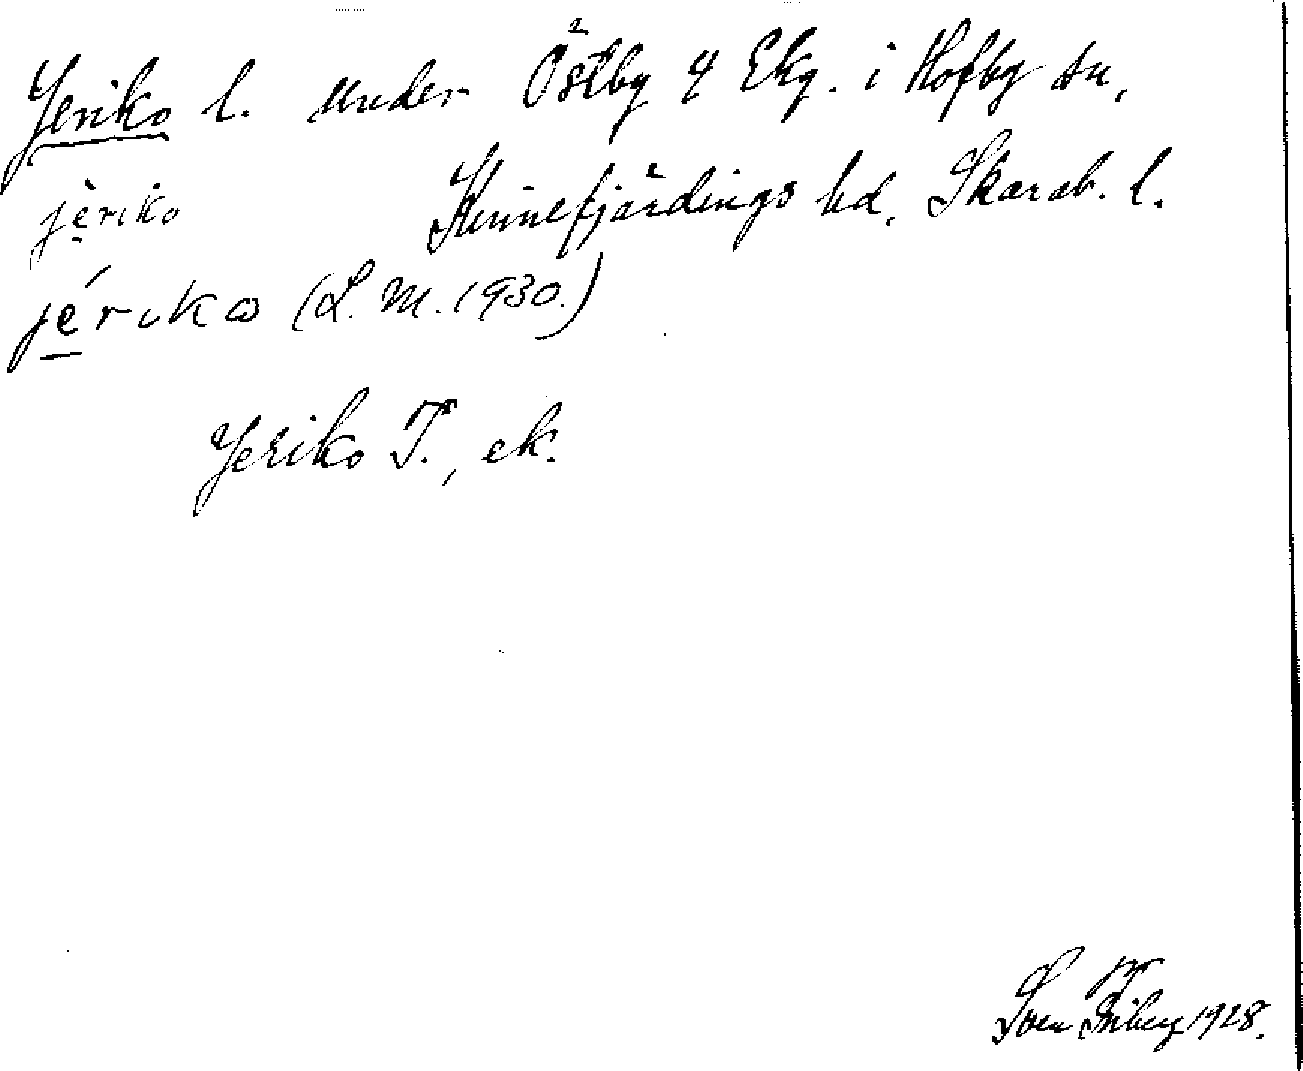 Jeriko l. under Östby 4 Ekg. i Hofby sn,
jèriko Kinnefjärdings hd, Skarab. l.
jériko (L. M. 1930.)
Jeriko T., ek.
Sven Friberg 1928.